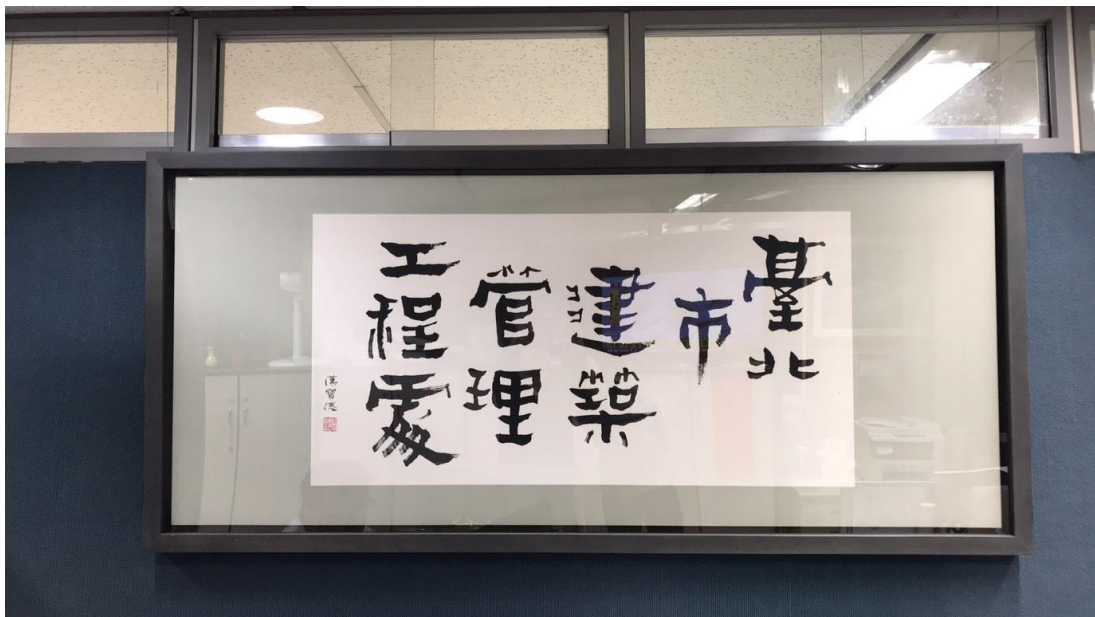 臺北
市
建築
管理
工程處
漢寶德